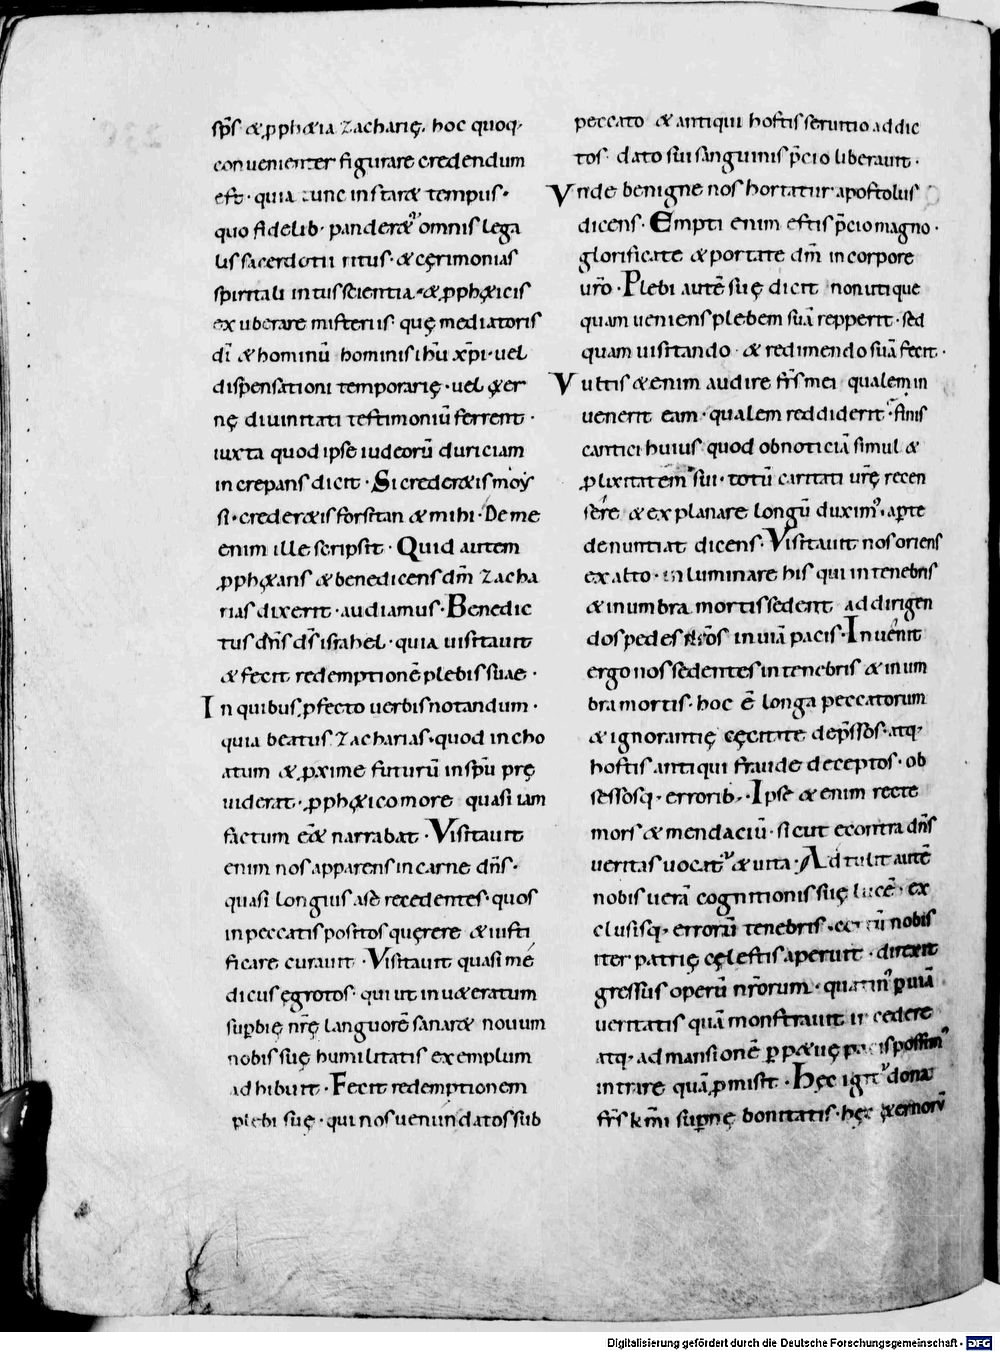 sp̄s· & ꝓph&ia zacharię. hoc quoq;
conuenienter figurare credendum
est· quia tunc instar& tempus·
quo fidelib· pander&ur omnis lega
lis sacerdotii ritus· & cęrimonias
spiritali intus scientia· & ꝓph&icis
exuberare misteriis· quę mediatoris
dī & hominū hominis ihū xp̄i· uel
dispensationi temporarię· uel &er
nę diuinitati testimoniū ferrent·
iuxta quod ipse iudeorū duriciam
increpans dicit· Si creder&is moysi
si· creder&is forsitan & mihi· De me
enim ille scripsit· Quid autem
ꝓph&ans & benedicens dm̄ zacha
rias dixerit· audiamus· Benedic
tus dn̄s ds̄ israhel· quia uisitauit
& fecit redemptionē plebis suae·
In quibus ꝓfecto uerbis notandum·
quia beatus zacharias· quod incho
atum & ꝓxime futurū in sp̄u prę
uiderat· ꝓph&ico more quasi iam
factum e&̄ narrabat· Visitauit
enim nos apparens in carne dn̄s·
quasi longius a se recedentes· quos
in peccatis positos quęrere & iusti
ficare curauit· Visitauit quasi me
dicus ęgrotos· qui ut inu&eratum
suꝑbię nr̄ę languorē sanar& nouum
nobis suę humilitatis exemplum
adhibuit· Fecit redemptionem
plebi suę· qui nos uenundatos sub
peccato & antiqui hostis seruitio addic
tos· dato sui sanguinis p̄cio liberauit·
Vnde benigne nos hortatur apostolus
dicens· Empti enim estis p̄cio magno·
glorificate & portate dm̄ in corpore
uro· Plebi autē suę dicit non utique
quam ueniens plebem suā repperit· sed
quam uisitando & redimendo suā fecit·
Vultis &enim audire fr̄s mei qualem in
uenerit eam· qualem reddiderit· finis
cantici huius quod ob noticiā simul &
ꝓlixitatem sui· totū caritati ur̄ę recen
sere & explanare longū duxim'· aꝑte
denuntiat dicens· Visitauit nos oriens
ex alto· inluminare his qui in tenebris
& in umbra mortis sedent ad dirigen
dos pedes nr̄os in uiā pacis· Inuenit
ergo nos sedentes in tenebris & in um
bra mortis· hoc ē longa peccatorum
& ignorantię cęcitate dep̄ssos· atq;
hostis antiqui fraude deceptos· ob
sessosq; errorib;· Ipse &enim recte
mors & mendaciū· sicut econtra dn̄s
ueritas uocat' & uita· Adtulit autē
nobis uerā cognitionis suę lucē· ex
clusisq; errorū tenebris· certū nobis
iter patrię cęlestis aperuit· direxit
gressus operū nr̄orum· quatin' ꝑ uiā
ueritatis quā monstrauit incedere
atq; ad mansionē ꝑp&uę pacis possim'
intrare quā ꝓmisit· Hęc igit' dona
fr̄s k̄mi suꝑnę bonitatis· hęc &ernorū
Digitalisierung gefördert durch die Deutsche Forschungsgemeinschaft - DFG